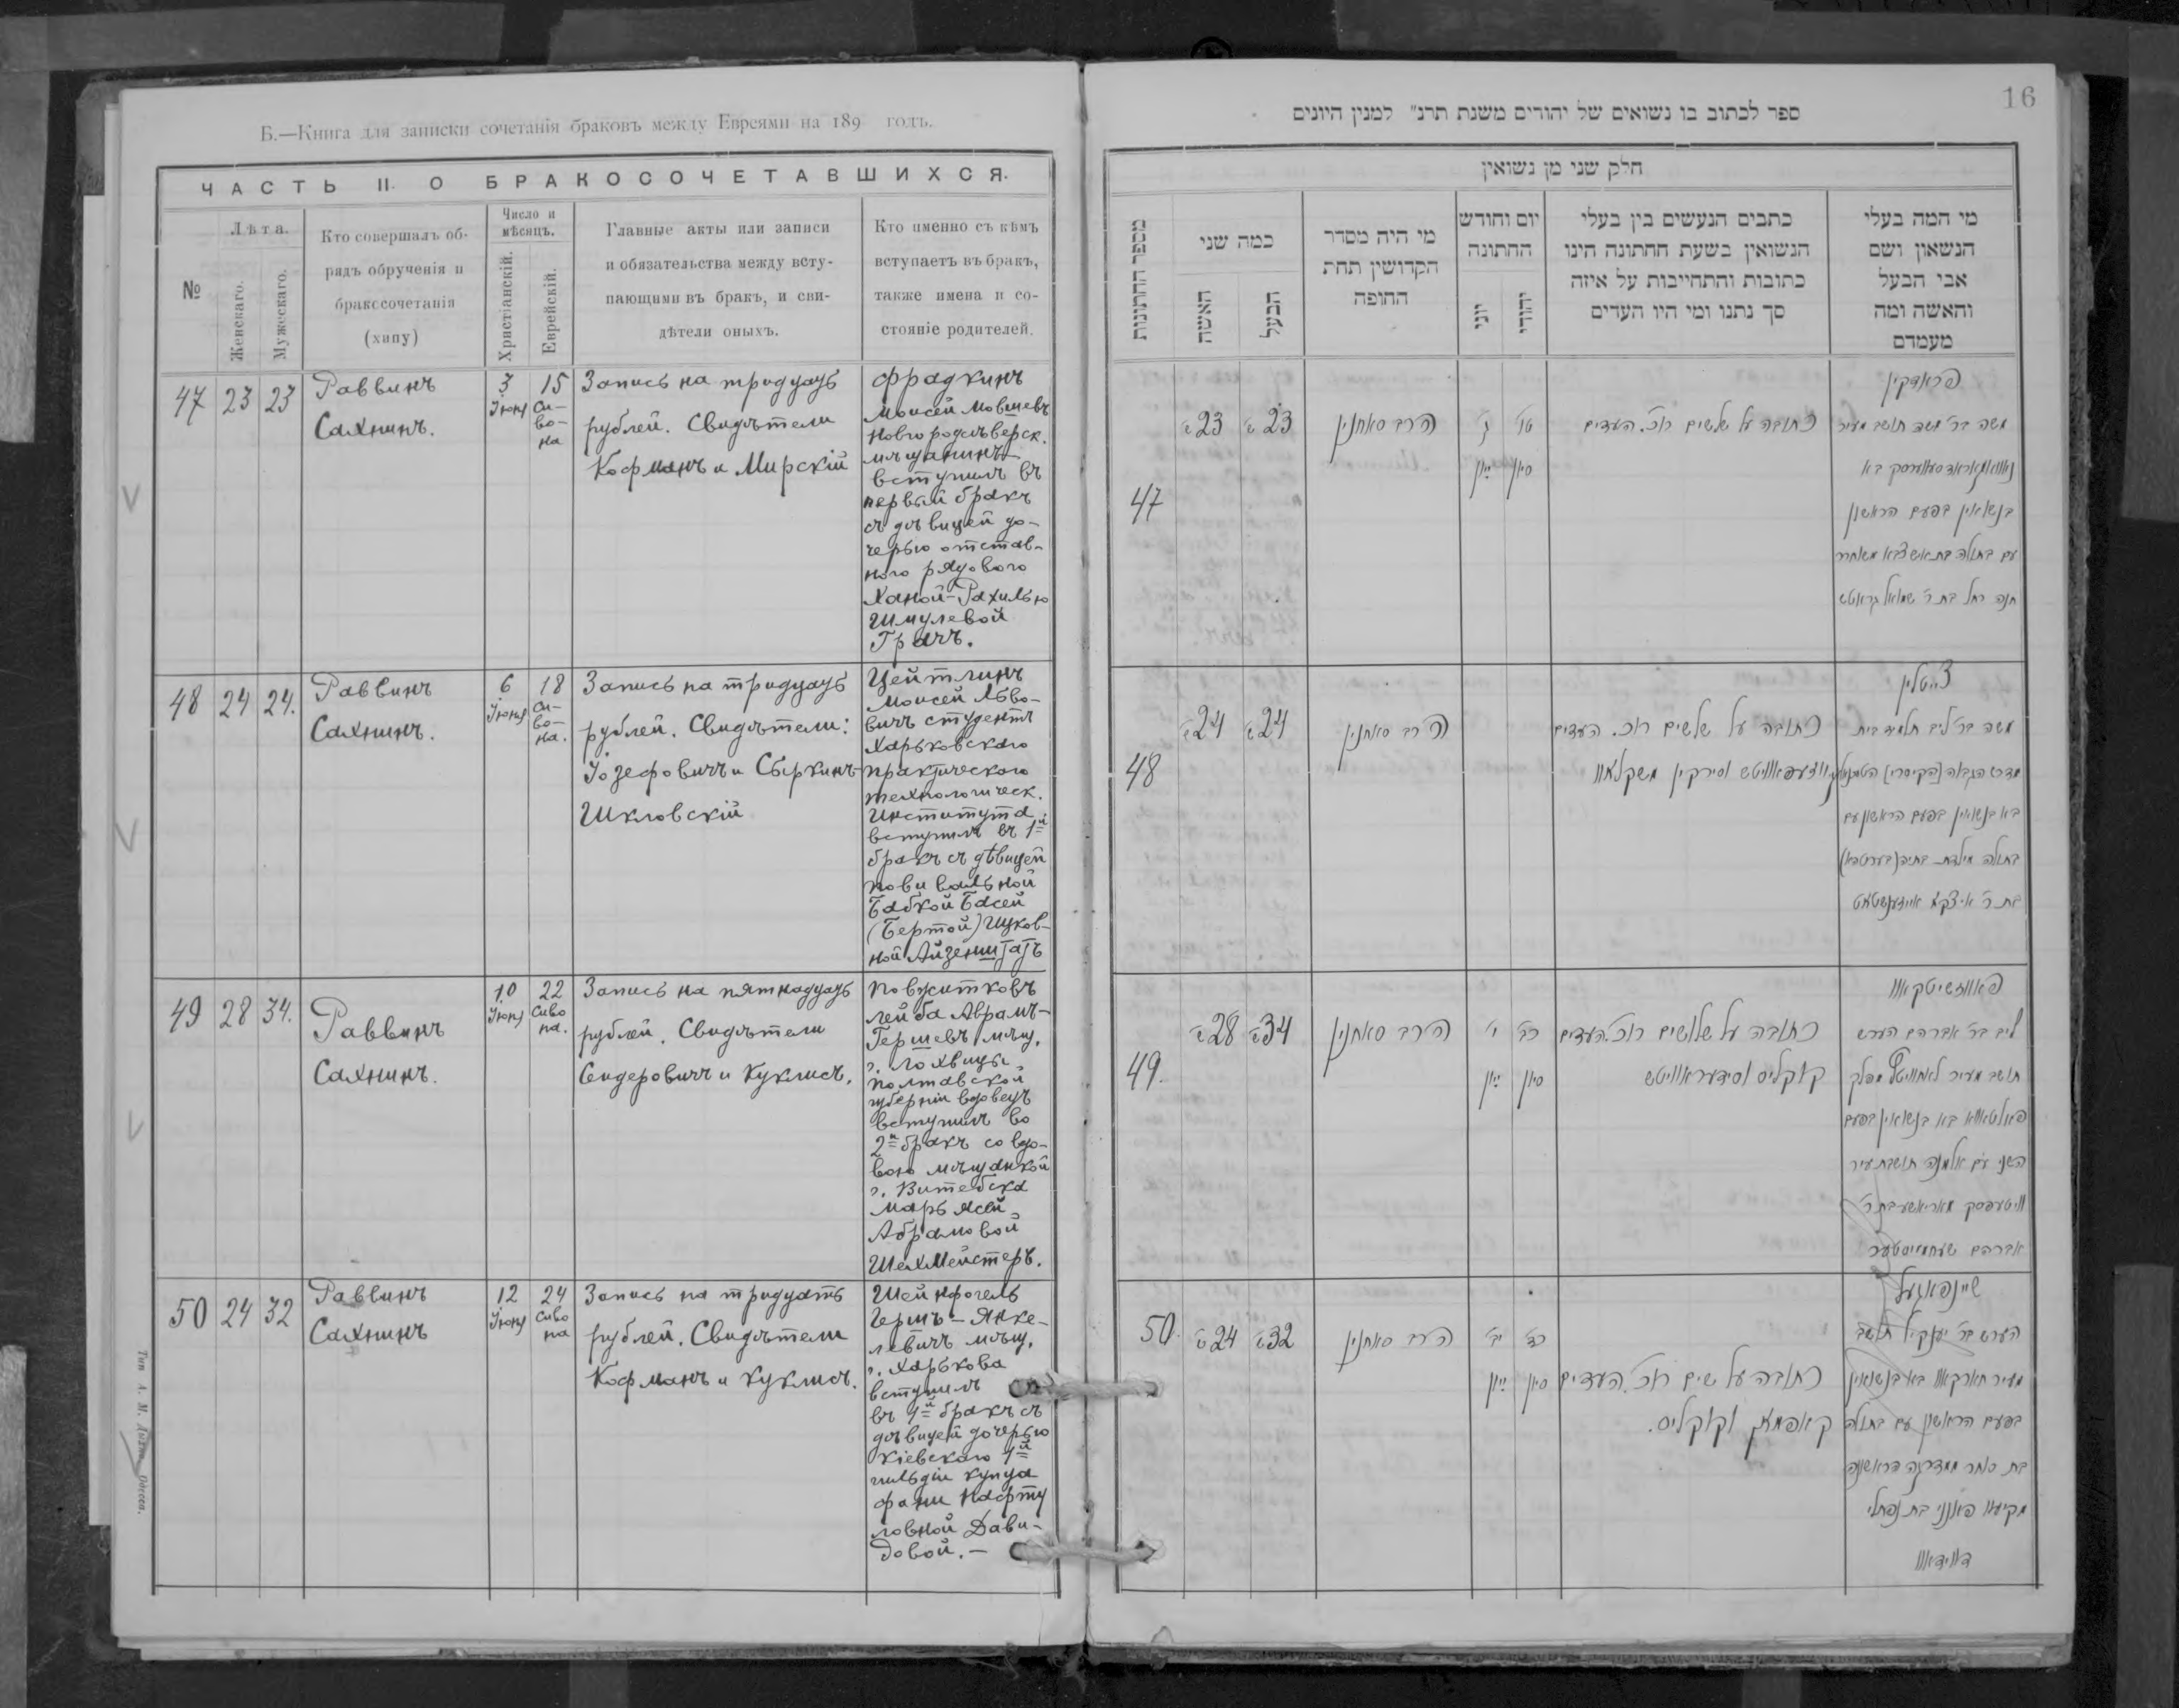 Б.—Книга для записки сочетанія браковъ между Евреями на 189 годъ.
ЧАСТЬ II. О БРАКОСОЧЕТАВШИХСЯ.
№
Лѣта.
Женскаго.
Мужескаго.
Кто совершалъ об-
рядъ обрученія и
бракосочетанія
(хипу)
Число и
мѣсяцъ.
Христіанскій.
Еврейскій.
Главные акты или записи
и обязательства между всту-
пающими въ бракъ, и сви-
дѣтели оныхъ.
Кто именно съ кѣмъ
вступаетъ въ бракъ,
также имена и со-
стояніе родителей.
47 23 23
Раввинъ
Сахнинъ.
3
Іюня
15
Си-
во-
на
Запись на тридцать
рублей. Свидѣтели
Кофманъ и Мирскій
Фрадкинъ
Моисей Мовшевъ
Новгородсѣверск.
мѣщанинъ
вступилъ въ
первый бракъ
съ дѣвицей до-
черью отстав-
ного рядового
Ханой-Рахилью
Шмулевой
Грачъ.
48 24 24.
Раввинъ
Сахнинъ.
6
Іюня
18
Си-
во-
на.
Запись на тридцать
рублей. Свидѣтели:
Іозефовичъ и Сыркинъ-
Шкловскій
Цейтлинъ
Моисей Льво-
вичъ студентъ
Харьковскаго
практическаго
технологическ.
Института
вступилъ въ 1й
бракъ съ дѣвицей
повивальной
бабкой Басей
(Бертой) Ицков-
ной Айзенштатъ
49 28 34.
Раввинъ
Сахнинъ.
10
Іюня
22
Сиво
на.
Запись на пятнадцать
рублей. Свидѣтели
Сидеровичъ и Куклисъ.
Повжитковъ
Лейба Аврамъ-
Гершевъ мѣщ.
г. Лохвицы
Полтавской
губерніи вдовецъ
вступилъ во
2й бракъ со вдо-
вою мѣщанкой
г. Витебска
Марьясей
Абрамовой
Шехмейстеръ.
50 24 32
Раввинъ
Сахнинъ
12
Іюня
24
Сиво
на
Запись на тридцать
рублей. Свидѣтели
Кофманъ и Куклисъ.
Шейнфогель
Гершъ-Янке-
левичъ мѣщ.
г. Харькова
вступилъ
въ 1й бракъ съ
дѣвицей дочерью
Кіевскаго 1й
гильдіи купца
Фани Нафту
ловной Дави-
довой.—
16
ספר לכתוב בו נשואים של יהודים משנת תרנ״ למנין היונים
חלק שני מן נשואין
מספר החתונות
כמה שני
האשה
הבעל
מי היה מסדר
הקדושין תחת
החופה
יום וחודש
החתונה
יוני
יהודי
כתבים הנעשים בין בעלי
הנשואין בשעת החתונה הינו
כתובות והתחייבות על איזה
סך נתנו ומי היו העדים
מי המה בעלי
הנשואין ושם
אבי הבעל
והאשה ומה
מעמדם
47
23
23
הרב סאחנין
ז׳
יוני
טו׳
סיון
כתובה על שלשים רוכ. העדים
פראדקין
משה בר׳ משה תושב מעיר
בא
בנשואין בפעם הראשון
עם בתולה בת
חנה רחל בת ר׳ שמואל גראטש
48
24
24
הרב סאחנין
כתובה על שלשים רוכ. העדים
צייטלין
משה בר׳ ליב תלמיד בית
בא בנשואין בפעם הראשון עם
בתולה מילדת
בת ר׳ איצקא אייזענשטאט
49.
28
34
הרב סאחנין
י׳
יוני
כב׳
סיון
כתובה על שלושים רוכ. העדים
קוקליס וסידעראוויטש
ליב בר׳ אברהם הערש
תושב מעיר לאחוויטץ מפלך
פאלטאווא בא בנשואין בפעם
השני עם אלמנה תושבת עיר
וויטעפסק מאריאשע בת ר׳
אברהם שעחמייסטער
50.
24
32
הרב סאחנין
יב׳
יוני
כד׳
סיון
כתובה על שים רוכ. העדים
קאפמאן וקוקליס.
שיינפאגעל
הערש בר׳ יענקיל תושב
מעיר חארקאוו בא בנשואין
בפעם הראשון עם בתולה
בת סוחר ממדרגה הראשונה
מקיעוו פאנני בת נפתלי
דווידאוו